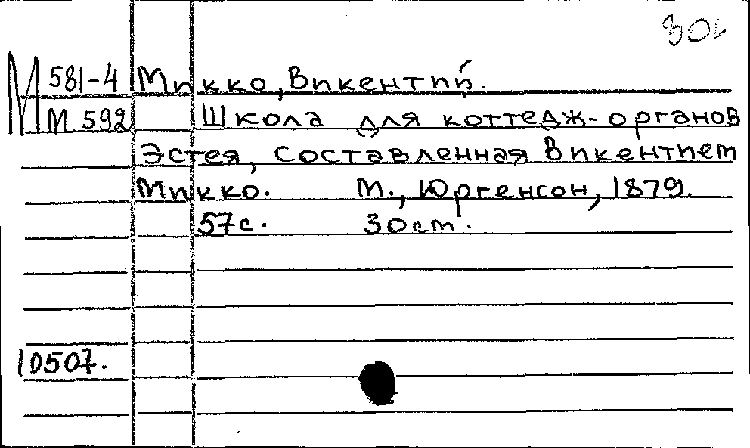 М 581-4 Микко, Викентий.
М 592 Школа для коттедж-органов
Эстея, составленная Викентием
Микко. М., Юргенсон, 1879.
57с. 30см.
10507.